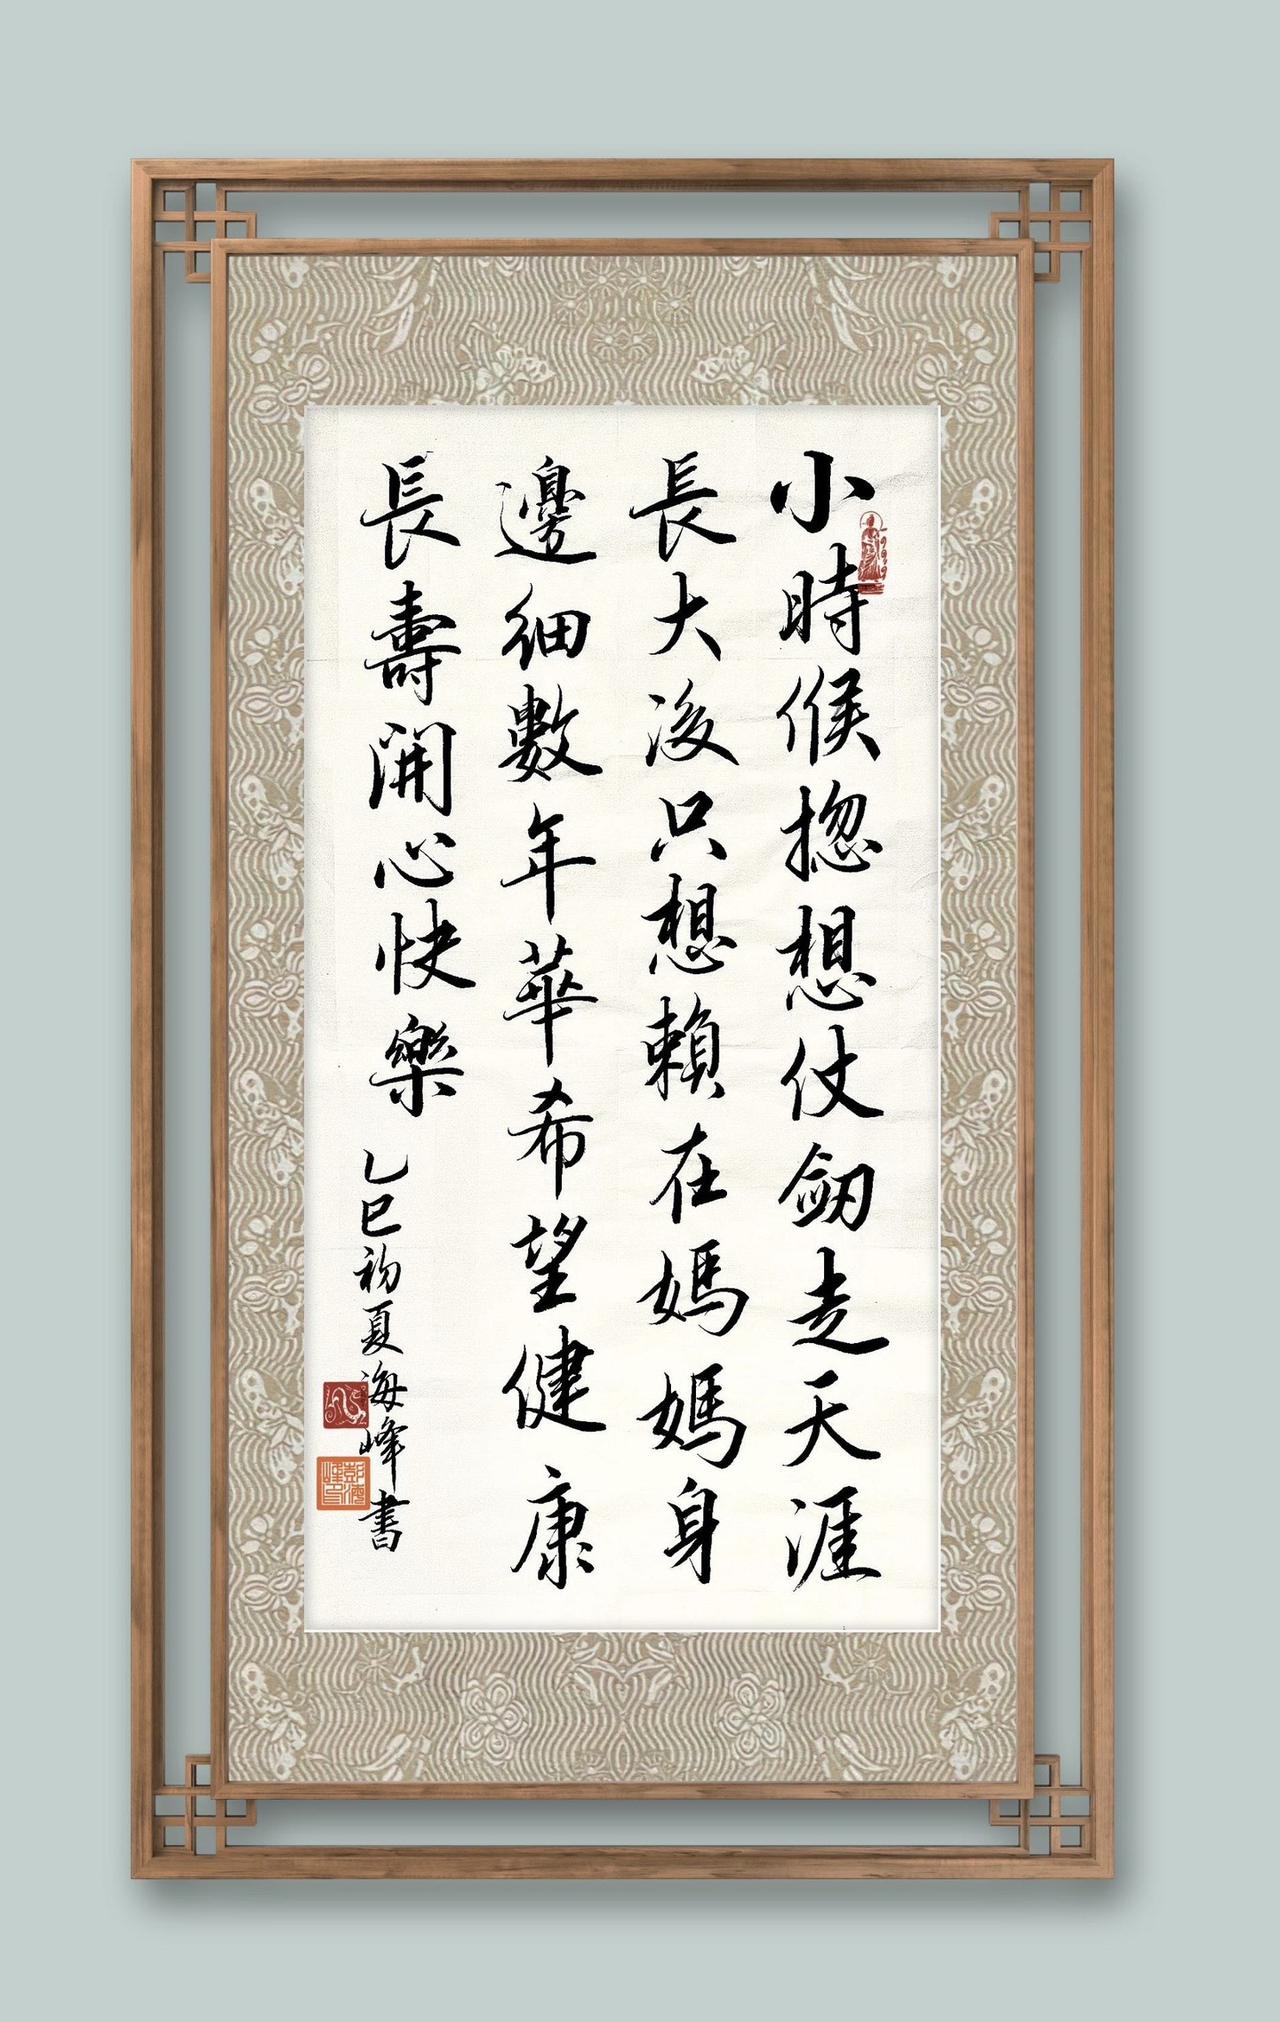 小時候揔想仗劒走天涯
長大後只想賴在媽媽身
邊細數年華希望健康
長壽開心快樂
乙巳初夏海峰書
彭海峰印